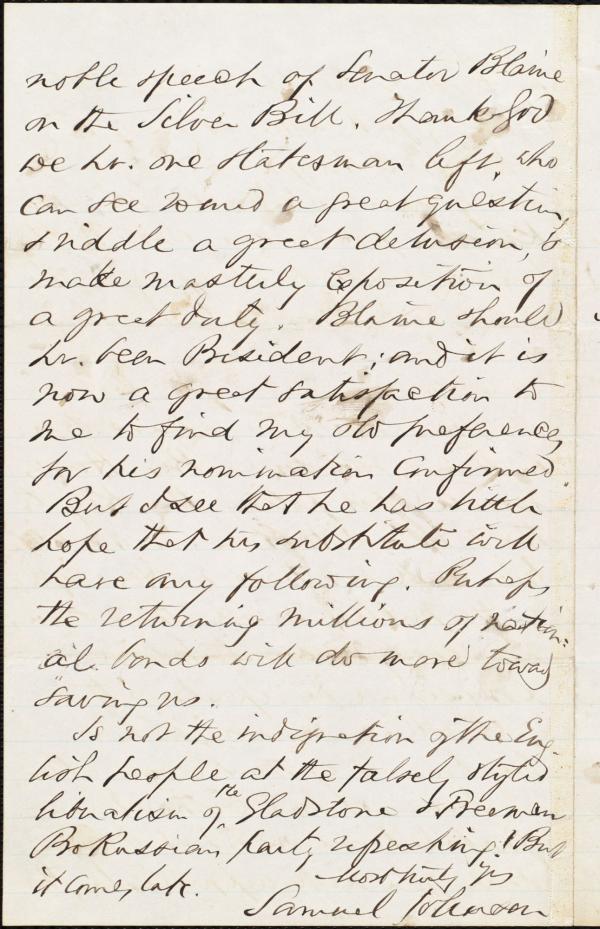 noble speech of Senator Blaine
on the Silver Bill. Thank God
we hv. one statesman left, who
can see round a great question,
& riddle a great delusion, &
make masterly exposition of
a great duty. Blaine should
hv. been President; and it is
now a great satisfaction to
me to find my old preference,
for his nomination confirmed.
But I see that he has little
hope that his substitute will
have any following. Perhaps
the returning millions of nation-
al bonds will do more toward
saving us.
Is not the indignation of the Eng-
lish people at the falsely styled
liberalism of the Gladstone & Freeman
Pro Russian party refreshing! But
it comes late. Most truly yrs
Samuel Johnson